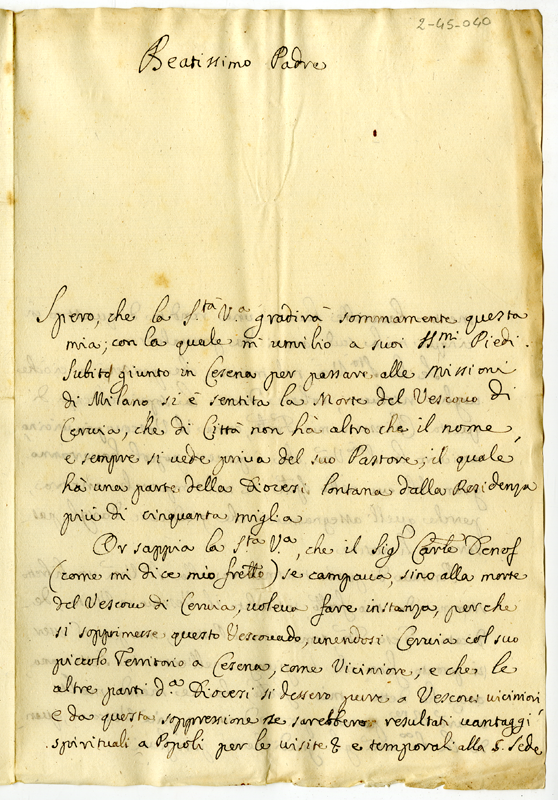 2-45-040
Beatissimo Padre
Spero, che la S.tà V.a gradirà sommamente questa
mia; con la quale mi umilio a suoi SS.mi Piedi.
Subito giunto in Cesena per passare alle Missioni
di Milano si è sentita la Morte del Vescovo di
Cervia, che di Città non hà altro che il nome,
e sempre si vede priva del suo Pastore; il quale
hà una parte della Diocesi lontana dalla Residenza
più di cinquanta miglia
Or sappia la S.tà V.a, che il Sig.r Card.le
(come mi dice mio frello) se campava, sino alla morte
del Vescovo di Cervia, voleva fare instanza, perche
si sopprimesse questo Vescovado, unendosi Cervia col suo
piccolo Territorio a Cesena, come Viciniore; e che le
altre parti d.a Diocesi si dessero pure a Vescovi viciniori
E da questa soppressione ne sarebbero resultati vantaggi
spirituali a Popoli per le visite & e temporali alla S. Sede